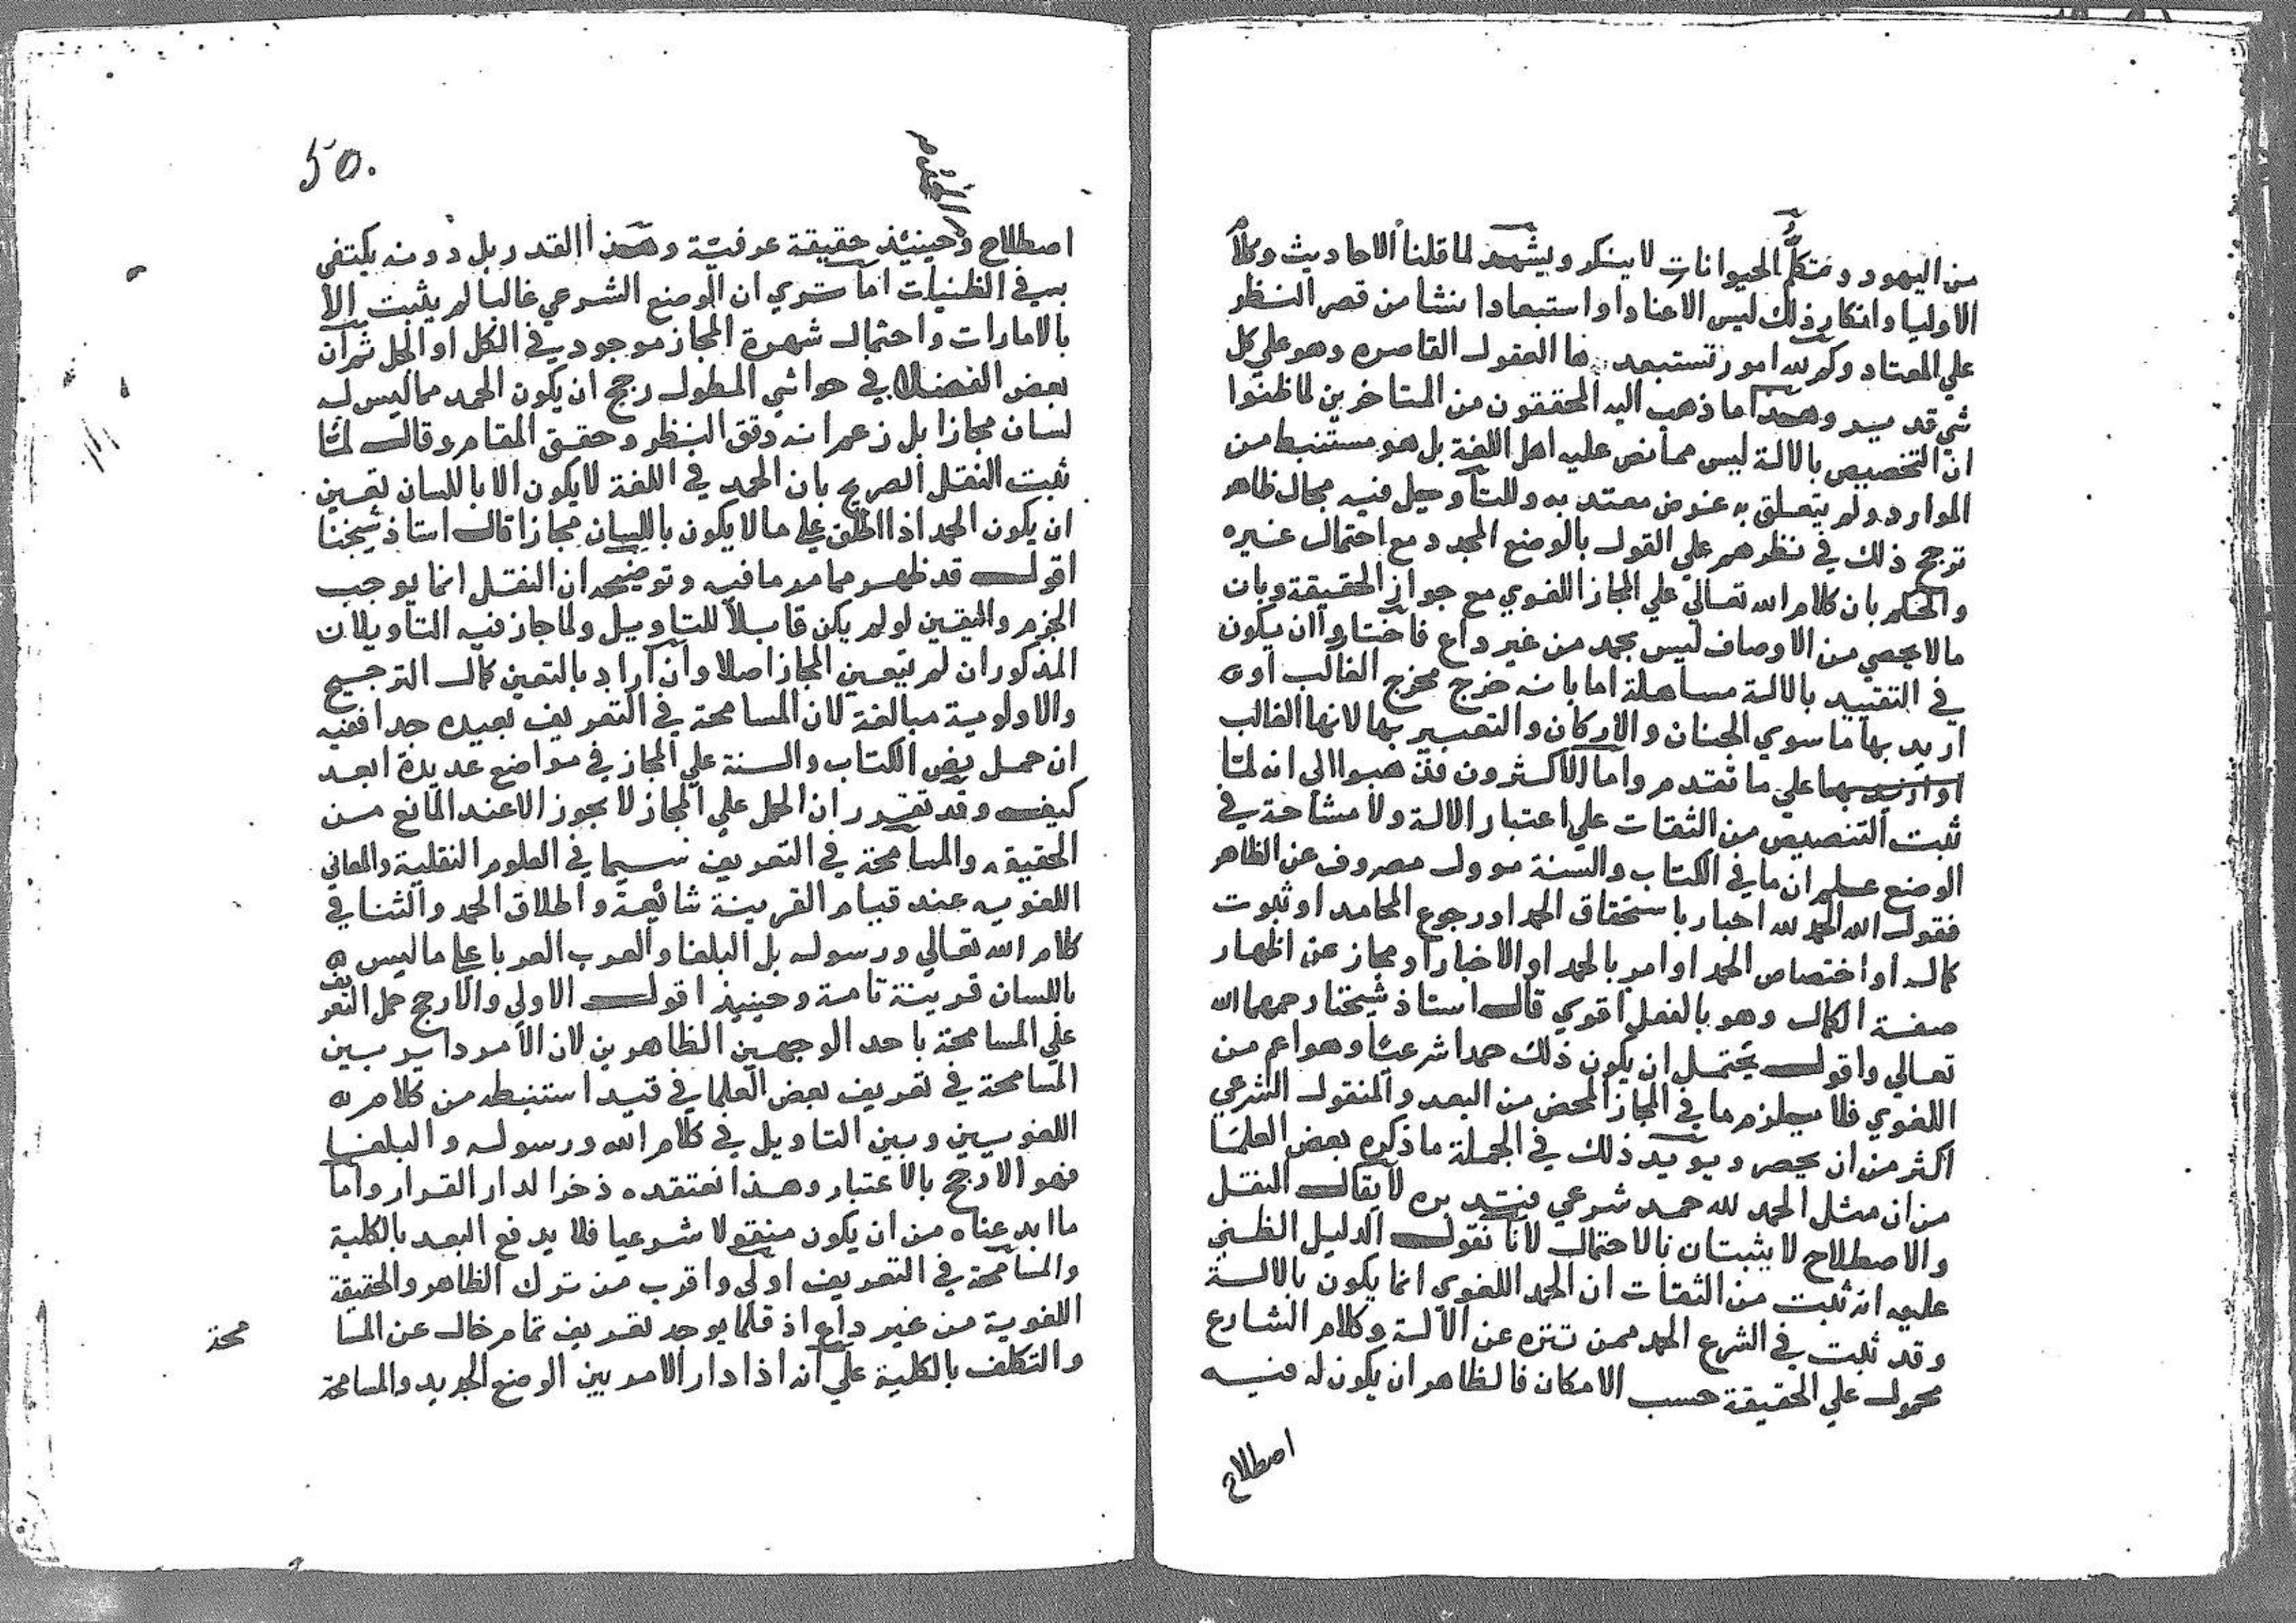 من اليهود وتكلم الحيوانات لا ينكر ويشهد لما قلنا الاحاديث وكلام
الاوليا وانكار ذلك ليس الا عنادا او استبعادا ينشا من قصر النظر
علي المعتاد وكم لله امور تستبعدها العقول القاصره وهو علي كل
شي قدير وهذا ما ذهب اليه المحققون من المتاخرين لما ظنوا
ان التخصيص بالالة ليس مما نص عليه اهل اللغة بل هو مستنبط من
الموارد ولم يتعلق به غرض معتد به وللتاويل فيه مجال ظاهر
ترجح ذلك في نظرهم علي القول بالوضع المجرد مع احتمال غيره
والحكم بان كلام الله تعالي علي المجاز اللغوي مع جواز الحقيقة وبان
ما لا يحصي من الاوصاف ليس بحمد من غير داع فاختاروا ان يكون
في التقييد بالالة مساهلة اما بانه خرج مخرج الغالب او
اريد بها ما سوي الجنان والاركان والتعبير بها لانها الغالب
او اريد بها علي ما تقدم واما الاكثرون فذهبوا الي انه لما
ثبت التنصيص من الثقات علي اعتبار الالة ولا مشاحة في
الوضع علم ان ما في الكتاب والسنة موول مصروف عن الظاهر
فقول الله الحمد لله اخبار باستحقاق الحمد او رجوع المحامد او ثبوت
كمال او اختصاص الحمد او امر بالحمد او الاخبار او مجاز عن اظهار
صفة الكمال وهو بالفعل اقوي قال استاذ شيخنا رحمهما الله
تعالي واقول يحتمل ان يكون ذلك حمدا شرعيا وهو اعم من
اللغوي فلا يلزم ما في المجاز المحض من البعد والمنقول الشرعي
اكثر من ان يحصر ويويد ذلك في الجملة ما ذكره بعض العلما
من ان مثل الحمد لله حمد شرعي فتدبره لا يقال النقل
والاصطلاح لا يثبتان بالاحتمال لانا نقول الدليل الظني
عليه انه ثبت من الثقات ان الحمد اللغوي انما يكون بالالة
وقد ثبت في الشرع الحمد ممن تنزه عن الالة وكلام الشارع
محمول علي الحقيقة حسب الامكان فالظاهر ان يكون له فيه
اصطلاح
50.
اصطلاح وحينئذ حقيقة عرفية وهذا القدر بل دونه يكتفي
به في الظنيات اما تري ان الوضع الشرعي غالبا لم يثبت الا
بالامارات واحتمال شهرة المجاز موجود في الكل او الجل ثم ان
بعض الفضلا في حواشي المطول رجح ان يكون الحمد مما ليس له
لسان مجازا بل زعم انه دقق النظر وحقق المقام وقال لما
ثبت النقل الصريح بان الحمد في اللغة لا يكون الا باللسان تعين
ان يكون الحمد اذا اطلق علي ما لا يكون باللسان مجازا قال استاذ شيخنا
اقول قد ظهر مما مر ما فيه وتوضيحه ان النقل انما يوجب
الجزم واليقين لو لم يكن قابلا للتاويل ولما جاز فيه التاويلان
المذكوران لم يتعين المجاز اصلا وان اراد بالتعين كمال الترجيح
والاولوية مبالغة لان المسامحة في التعريف بعيده جدا ففيه
ان حمل نص الكتاب والسنة علي المجاز في مواضع عديدة ابعد
كيف وقد تقرر ان الحمل علي المجاز لا يجوز الا عند المانع من
الحقيقه والمسامحة في التعريف سيما في العلوم النقلية والمعاني
اللغويه عند قيام القرينة شائعة واطلاق الحمد والثنا في
كلام الله تعالي ورسوله بل البلغا والعرب العربا علي ما ليس
باللسان قرينة تامة وحينئذ اقول الاولي والارجح حمل التعريف
علي المسامحة باحد الوجهين الظاهرين لان الامر داير بين
المسامحة في تعريف بعض العلما في قيد استنبطه من كلام
اللغويين وبين التاويل في كلام الله ورسوله والبلغا
فهو الارجح بالاعتبار وهذا نعتقده ذخرا لدار القرار واما
ما ابدعناه من ان يكون منقولا شرعيا فلا يدفع البعد بالكلية
والمسامحة في التعريف اولي واقرب من ترك الظاهر والحقيقة
اللغوية من غير داع اذ قلما يوجد تعريف تام خال عن المسا محة
والتكلف بالكلية علي انه اذا دار الامر بين الوضع الجديد والمسامحة